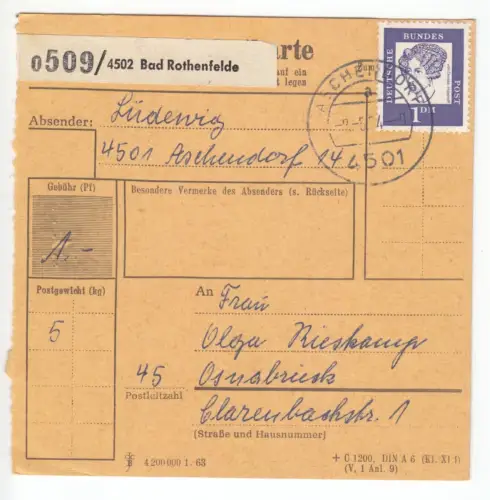 0509/4502 Bad Rothenfelde
arte
auf ein
t legen
DEUTSCHE BUNDES POST
1 DM
a
4501
Absender: Lüdewig
4501 Aschendorf 14
Gebühr (Pf)
Besondere Vermerke des Absenders (s. Rückseite)
1.-
Postgewicht (kg)
5
An Frau
Olga Rieskamp
45 Osnabrück
Postleitzahl
Clarenbachstr. 1
(Straße und Hausnummer)
4 200 000 1. 63
+ C 1200, DIN A 6 (Kl. XI f)
(V, 1 Anl. 9)